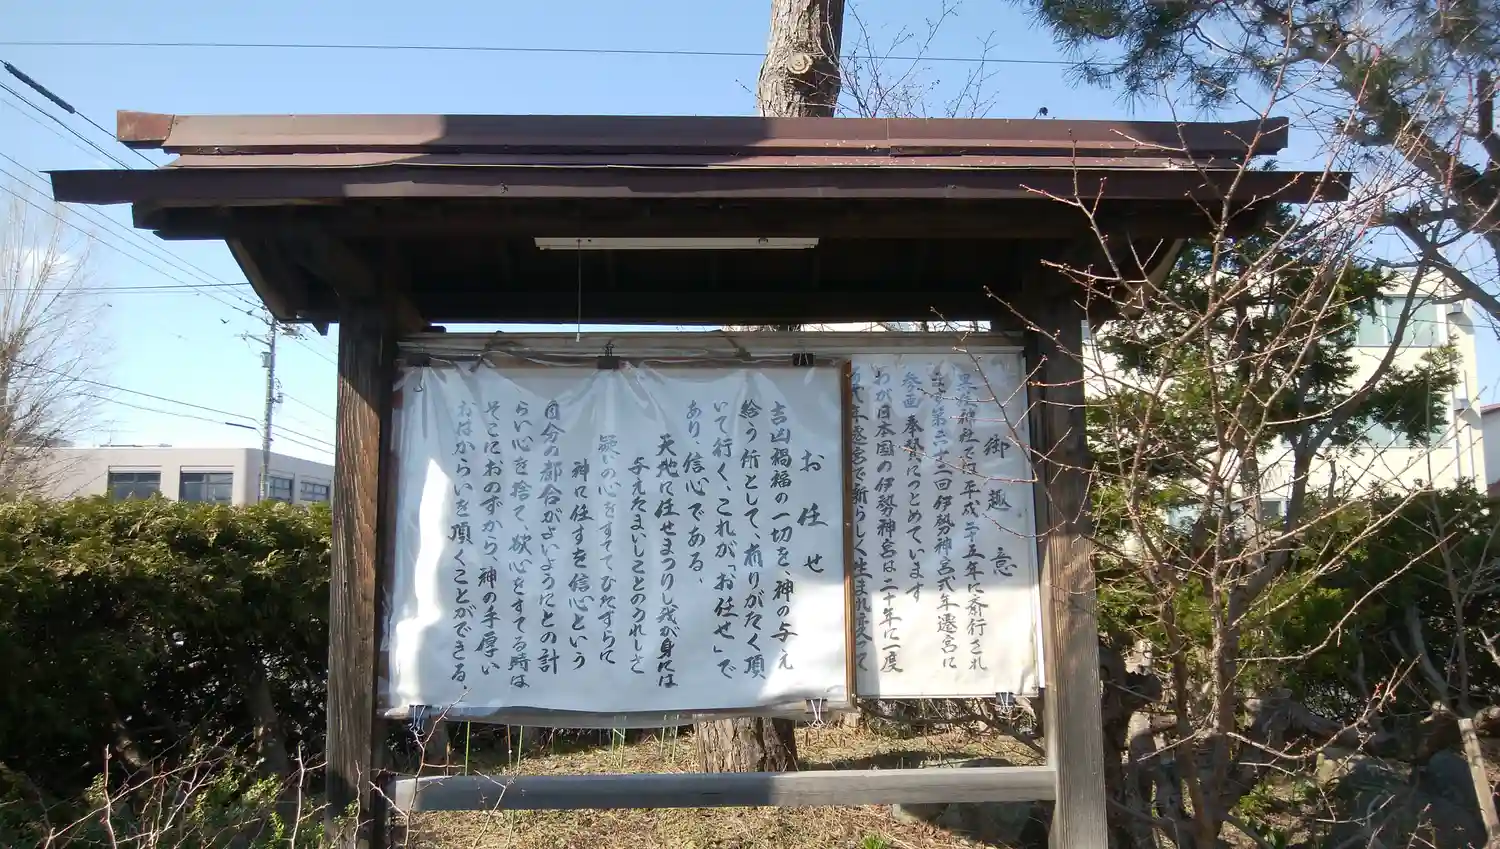 御趣意
神社で平成二十五年に斎行され
第六十二回伊勢神宮式年遷宮に
参画 奉賛につとめています
わが日本国の伊勢神宮は二十年に一度
式年遷宮で新らしく生まれ変って
お任せ
吉凶禍福の一切を、神の与え
給う所として、有りがたく頂
いて行く、これが「お任せ」で
あり、信心である、
天地に任せまつりし我が身には
与えたまいしことのうれしさ
疑いの心をすててひたすらに
神に任すを信心という
自分の都合がよいようにとの計
らい心を捨て、欲心をすてる時は
そこにおのずから、神の手厚い
おはからいを頂くことができる